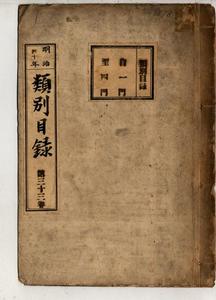 類別目録
自一門
至四門
明治
四十年
類別目録
第三十三巻